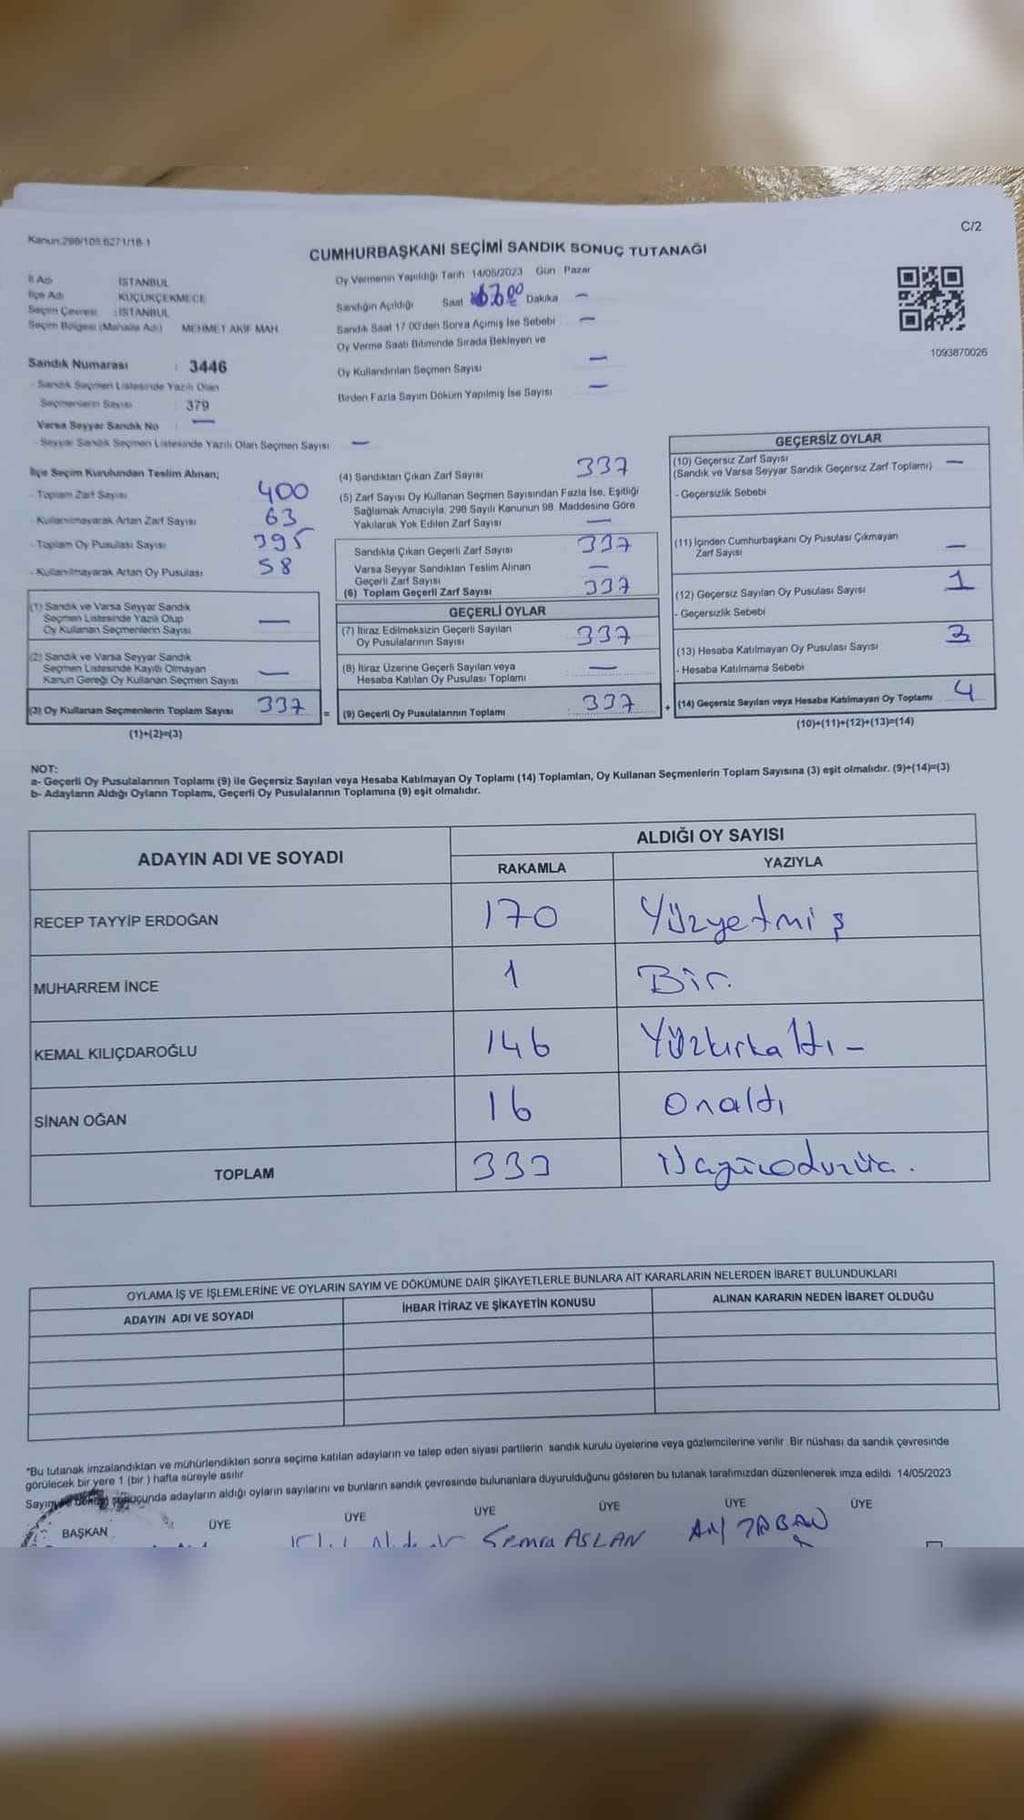 Kanun:298/108.6271/18-1
C/2
CUMHURBAŞKANI SEÇİMİ SANDIK SONUÇ TUTANAĞI
İl Adı İSTANBUL
İlçe Adı KÜÇÜKÇEKMECE
Seçim Çevresi : İSTANBUL
Seçim Bölgesi (Mahalle Adı) MEHMET AKİF MAH.
Sandık Numarası : 3446
- Sandık Seçmen Listesinde Yazılı Olan
Seçmenlerin Sayısı : 379
Varsa Seyyar Sandık No : —
- Seyyar Sandık Seçmen Listesinde Yazılı Olan Seçmen Sayısı —
Oy Vermenin Yapıldığı Tarih 14/05/2023 Gün Pazar
Sandığın Açıldığı Saat Dakika —
Sandık Saat 17.00'den Sonra Açılmış İse Sebebi —
Oy Verme Saati Bitiminde Sırada Bekleyen ve
Oy Kullandırılan Seçmen Sayısı —
Birden Fazla Sayım Döküm Yapılmış İse Sayısı —
1093870026
İlçe Seçim Kurulundan Teslim Alınan;
- Toplam Zarf Sayısı 400
- Kullanılmayarak Artan Zarf Sayısı 63
- Toplam Oy Pusulası Sayısı 395
- Kullanılmayarak Artan Oy Pusulası 58
(1) Sandık ve Varsa Seyyar Sandık
Seçmen Listesinde Yazılı Olup
Oy Kullanan Seçmenlerin Sayısı —
(2) Sandık ve Varsa Seyyar Sandık
Seçmen Listesinde Kayıtlı Olmayan
Kanun Gereği Oy Kullanan Seçmen Sayısı —
(3) Oy Kullanan Seçmenlerin Toplam Sayısı 337 =
(1)+(2)=(3)
(4) Sandıktan Çıkan Zarf Sayısı 337
(5) Zarf Sayısı Oy Kullanan Seçmen Sayısından Fazla İse, Eşitliği
Sağlamak Amacıyla, 298 Sayılı Kanunun 98. Maddesine Göre
Yakılarak Yok Edilen Zarf Sayısı —
Sandıkta Çıkan Geçerli Zarf Sayısı 337
Varsa Seyyar Sandıktan Teslim Alınan
Geçerli Zarf Sayısı —
(6) Toplam Geçerli Zarf Sayısı 337
GEÇERLİ OYLAR
(7) İtiraz Edilmeksizin Geçerli Sayılan
Oy Pusulalarının Sayısı 337
(8) İtiraz Üzerine Geçerli Sayılan veya
Hesaba Katılan Oy Pusulası Toplamı —
(9) Geçerli Oy Pusulalarının Toplamı 337 +
GEÇERSİZ OYLAR
(10) Geçersiz Zarf Sayısı —
(Sandık ve Varsa Seyyar Sandık Geçersiz Zarf Toplamı)
- Geçersizlik Sebebi
(11) İçinden Cumhurbaşkanı Oy Pusulası Çıkmayan
Zarf Sayısı —
(12) Geçersiz Sayılan Oy Pusulası Sayısı 1
- Geçersizlik Sebebi
(13) Hesaba Katılmayan Oy Pusulası Sayısı 3
- Hesaba Katılmama Sebebi
(14) Geçersiz Sayılan veya Hesaba Katılmayan Oy Toplamı 4
(10)+(11)+(12)+(13)=(14)
NOT:
a- Geçerli Oy Pusulalarının Toplamı (9) ile Geçersiz Sayılan veya Hesaba Katılmayan Oy Toplamı (14) Toplamları, Oy Kullanan Seçmenlerin Toplam Sayısına (3) eşit olmalıdır. (9)+(14)=(3)
b- Adayların Aldığı Oyların Toplamı, Geçerli Oy Pusulalarının Toplamına (9) eşit olmalıdır.
ADAYIN ADI VE SOYADI
ALDIĞI OY SAYISI
RAKAMLA YAZIYLA
RECEP TAYYİP ERDOĞAN 170 Yüzyetmiş
MUHARREM İNCE 1 Bir.
KEMAL KILIÇDAROĞLU 146 Yüzkırkaltı –
SİNAN OĞAN 16 Onaltı
TOPLAM 333
OYLAMA İŞ VE İŞLEMLERİNE VE OYLARIN SAYIM VE DÖKÜMÜNE DAİR ŞİKAYETLERLE BUNLARA AİT KARARLARIN NELERDEN İBARET BULUNDUKLARI
ADAYIN ADI VE SOYADI İHBAR İTİRAZ VE ŞİKAYETİN KONUSU ALINAN KARARIN NEDEN İBARET OLDUĞU
"Bu tutanak imzalandıktan ve mühürlendikten sonra seçime katılan adayların ve talep eden siyasi partilerin sandık kurulu üyelerine veya gözlemcilerine verilir. Bir nüshası da sandık çevresinde
görülecek bir yere 1 (bir) hafta süreyle asılır
Sayım ve sonuçunda adayların aldığı oyların sayılarını ve bunların sandık çevresinde bulunanlara duyurulduğunu gösteren bu tutanak tarafımızdan düzenlenerek imza edildi. 14/05/2023
BAŞKAN ÜYE ÜYE ÜYE ÜYE ÜYE ÜYE
Semra ASLAN